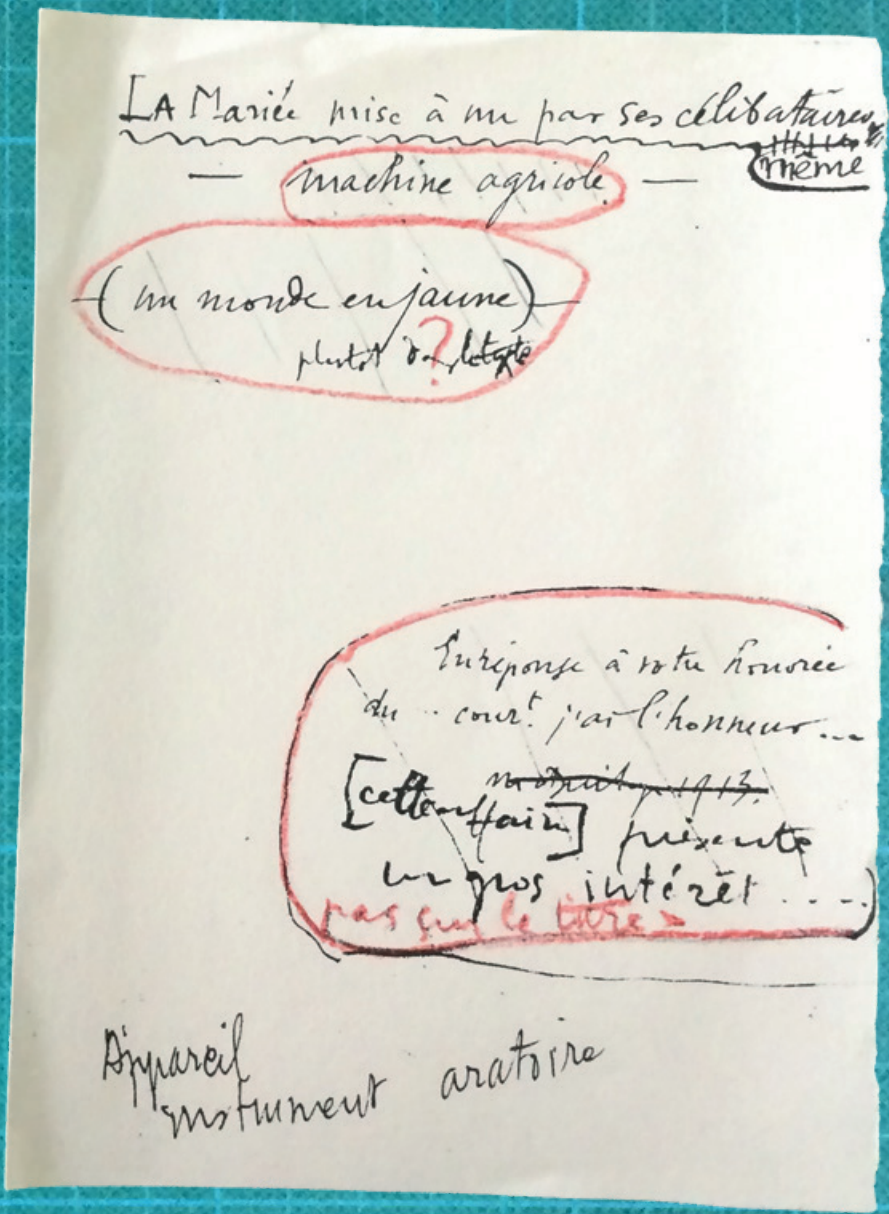 LA Mariée mise à nu par ses célibataires,
même
— machine agricole —
(un monde en jaune)
?
plutôt texte
En réponse à votre honorée
du .. cour.t j'ai l'honneur...
1913.
[cette affaire] présente
un gros intérêt ....)
pas sur le titre
Appareil
instrument aratoire